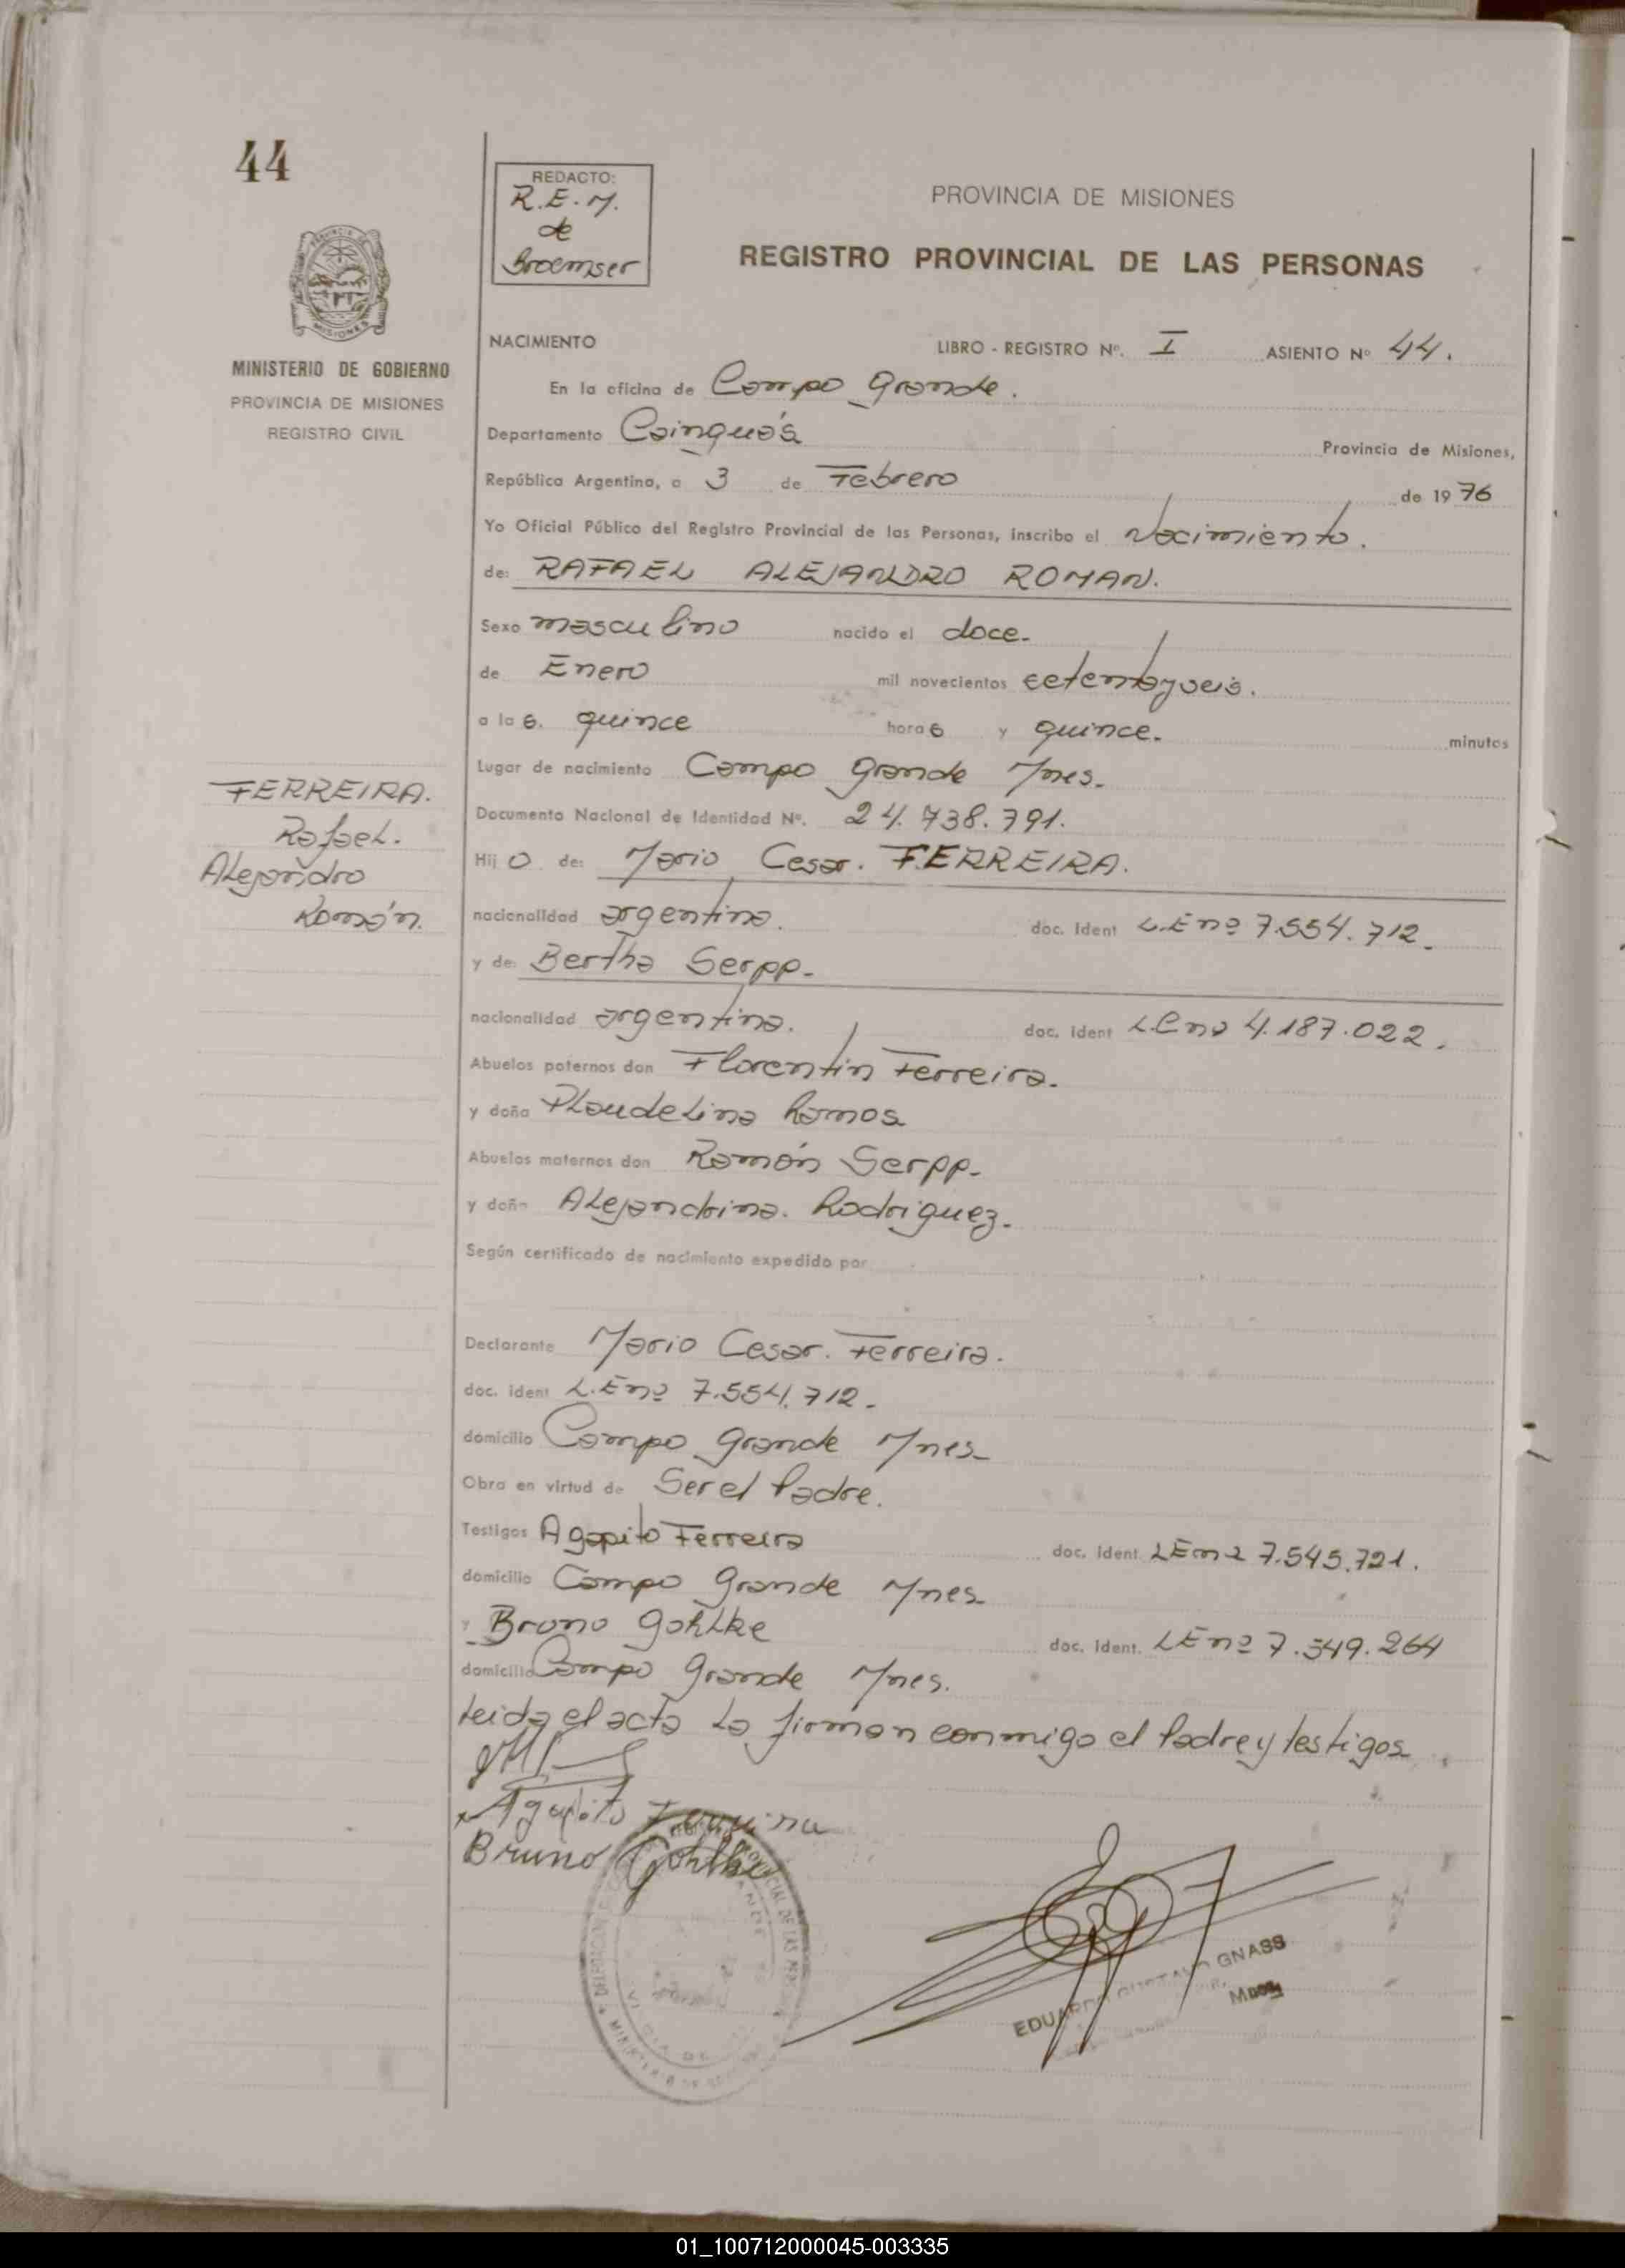 44
REDACTO:
R.E.M.
de
Broemser
PROVINCIA DE MISIONES
REGISTRO PROVINCIAL DE LAS PERSONAS
MISIONES
MINISTERIO DE GOBIERNO
PROVINCIA DE MISIONES
REGISTRO CIVIL
NACIMIENTO LIBRO - REGISTRO Nº. I ASIENTO Nº 44.
En la oficina de Campo Grande.
Departamento Cainguás Provincia de Misiones,
República Argentina, a 3 de Febrero de 1976
Yo Oficial Público del Registro Provincial de las Personas, inscribo el Nacimiento.
de: RAFAEL ALEJANDRO ROMAN.
Sexo masculino nacido el doce.
de Enero mil novecientos setentayseis.
a las. quince horas y quince. minutos
Lugar de nacimiento Campo Grande Mnes.
Documento Nacional de Identidad Nº. 24.738.791.
Hijo de: Mario Cesar. FERREIRA.
FERREIRA.
Rafael.
Alejandro
Román.
nacionalidad argentina. doc. Ident L.E nº 7.554.712.
y de: Bertha Serpp.
nacionalidad argentina. doc. ident L.C nº 4.187.022.
Abuelos paternos don Florentín Ferreira.
y doña Plaudelina Ramos
Abuelos maternos don Ramón Serpp.
y doña Alejandrina. Rodriguez.
Según certificado de nacimiento expedido por
Declarante Mario Cesar. Ferreira.
doc. ident L.E nº 7.554.712.
domicilio Campo Grande Mnes
Obra en virtud de Ser el Padre.
Testigos Agapito Ferreira doc. ident LE nº 7.545.721.
domicilio Campo Grande Mnes
y Bruno Gohlke doc. ident. LE nº 7.549.264
domicilio Campo Grande Mnes.
Leida el acta la firman conmigo el Padre y testigos
Agapito Ferreira
Bruno Gohlke
EDUARDO GUSTAVO GNASS
01_100712000045-003335